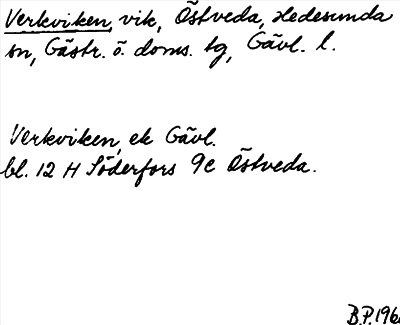 Verkviken, vik, Östveda, Hedesunda
sn, Gästr. ö. doms. tg, Gävl. l.
Verkviken, ek Gävl.
bl. 12 H Söderfors 9c Östveda.
B.P. 196